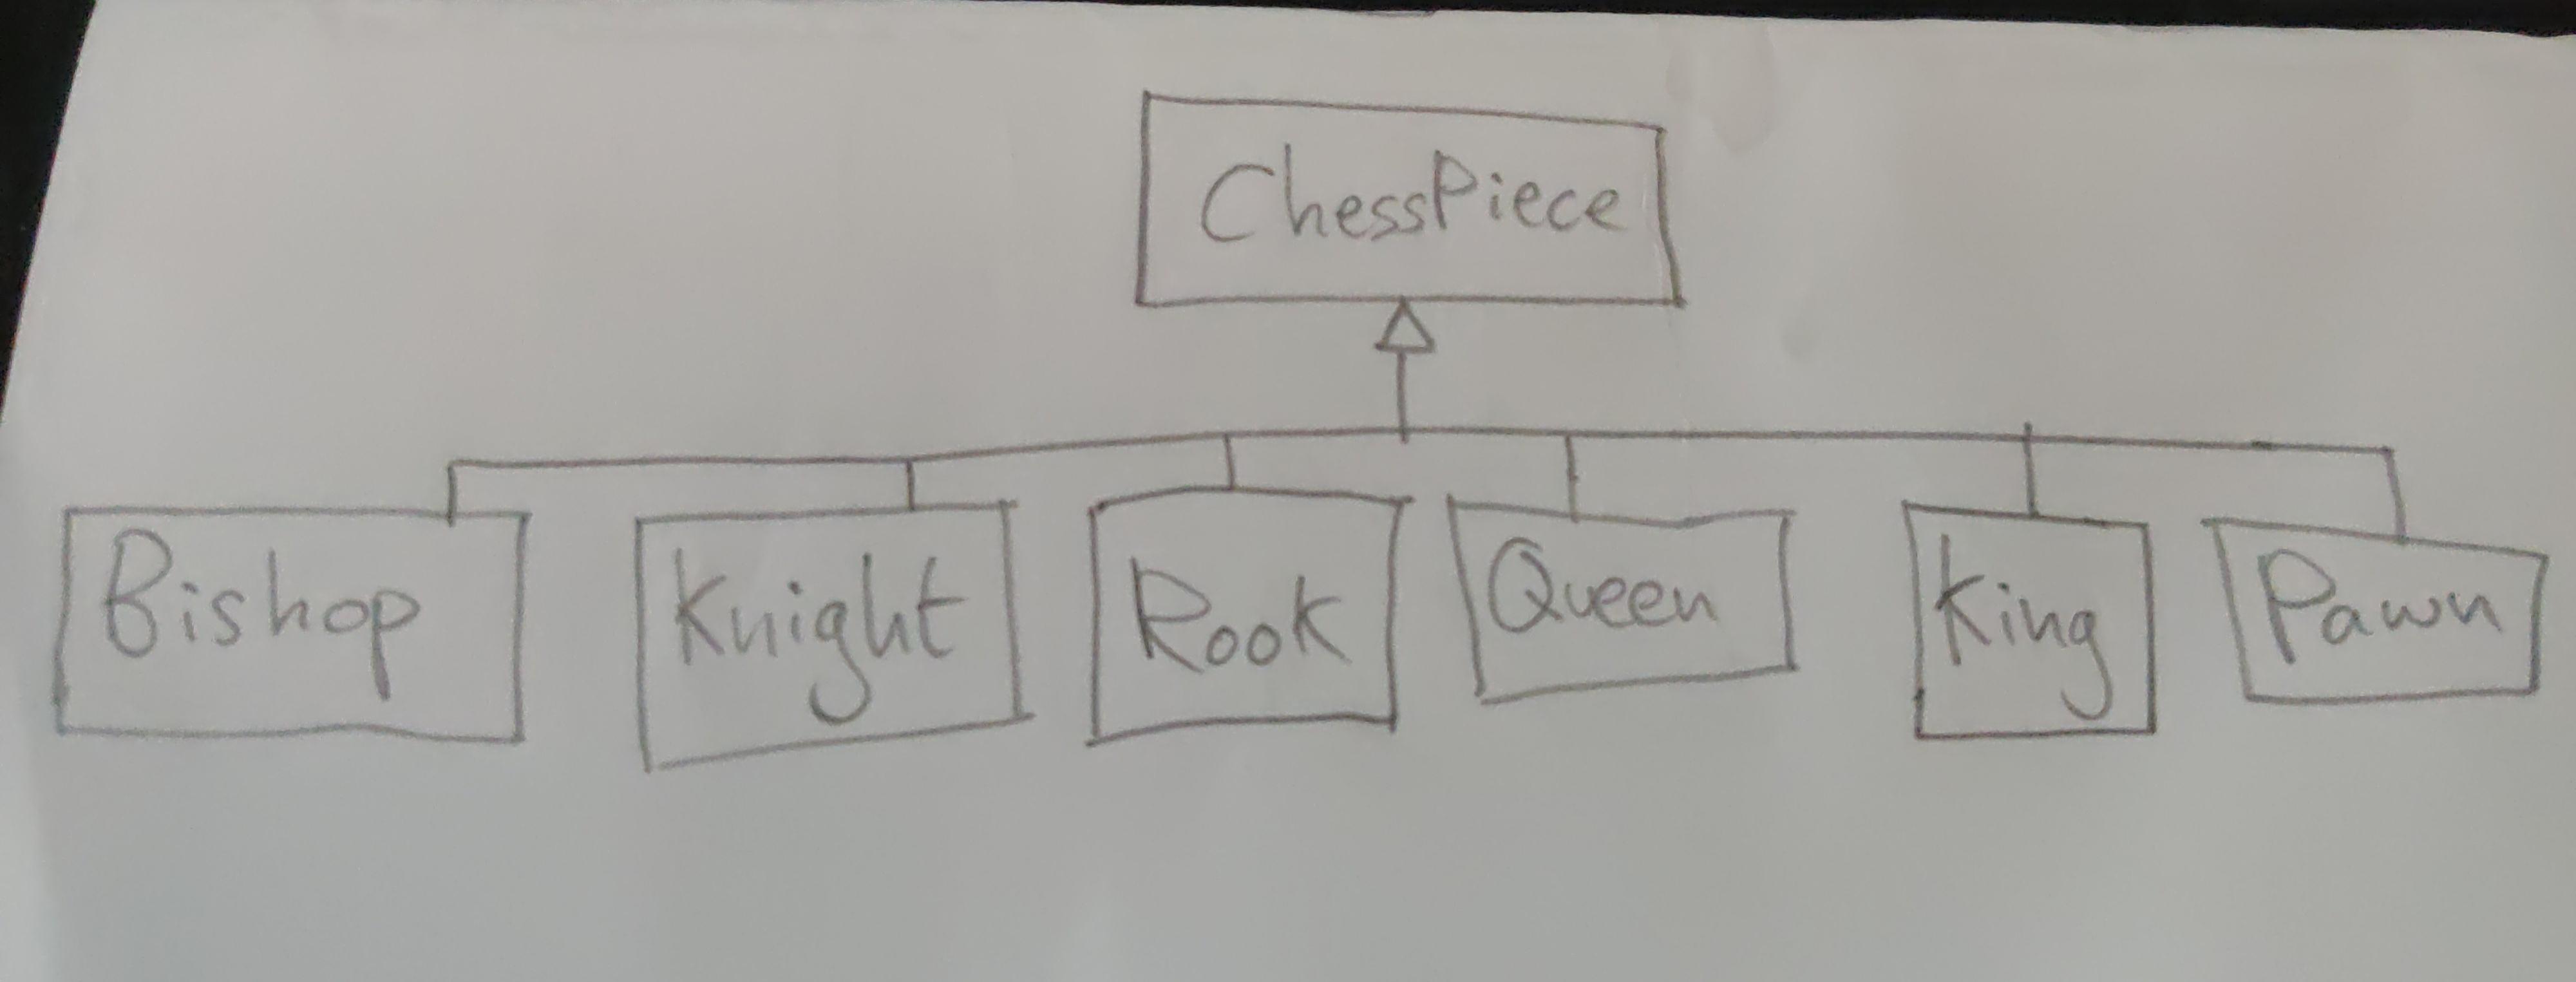 ChessPiece
Bishop
Knight
Rook
Queen
King
Pawn